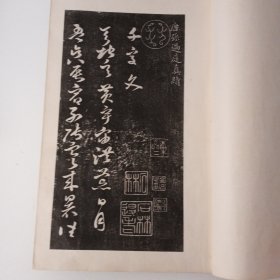 唐孫過庭真蹟
千字文
天地玄黃宇宙洪荒日月
盈昃辰宿列張寒來暑往